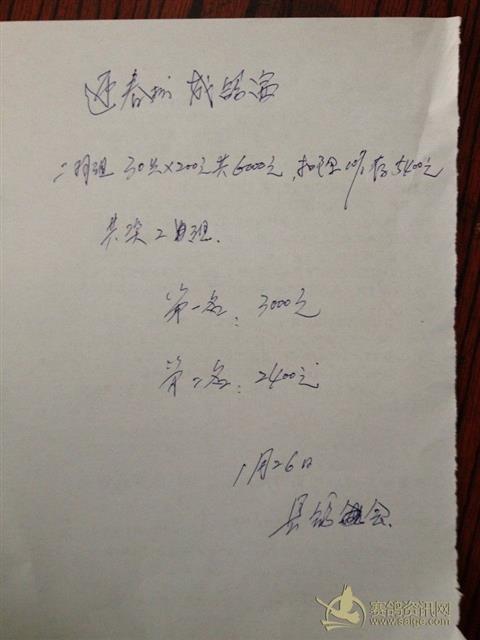 迎春杯成鸽赛
二羽组 30只×200元共6000元,扣管理10%存5400元
共奖2羽组.
第一名:3000元
第二名:2400元
1月26日
县鸽协会.
赛鸽资讯网
www.saige.com